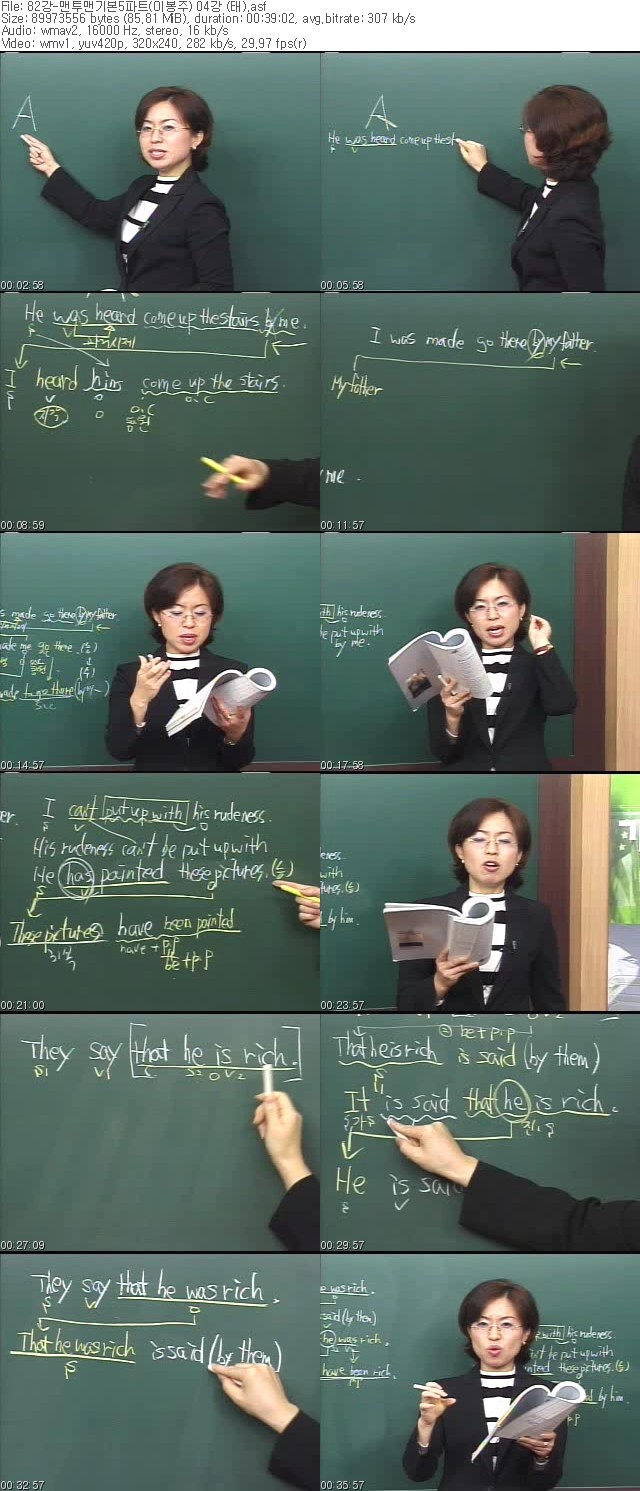 File: 82강-맨투맨기본5파트(이봉주) 04강 (태).asf
Size: 89973556 bytes (85.81 MiB), duration: 00:39:02, avg.bitrate: 307 kb/s
Audio: wmav2, 16000 Hz, stereo, 16 kb/s
Video: wmv1, yuv420p, 320x240, 282 kb/s, 29.97 fps(r)
A
00:02:58
A
He was heard come up the st
00:05:58
He was heard come up the stairs by me.
I heard him come up the stairs.
O O.C
지각 O O.C
동원
00:08:59
I was made go there by my father.
My father
me.
00:11:57
s made go there by my father.
ade me go there.
made to go there (by
S.C
00:14:57
his rudeness.
e put up with
by me.
00:17:58
er. I can't put up with his rudeness.
His rudeness can't be put up with
He has painted these pictures.
These pictures have been painted
have + p.p
be + p.p
00:21:00
eness.
with
tures.
by him.
00:23:57
They say that he is rich.
00:27:09
be + p.p
That he is rich is said (by them)
It is said that he is rich.
He is said
00:29:57
They say that he was rich.
That he was rich is said (by them)
00:32:57
e was rich.
said (by them)
he was rich.
have been rich.
with his rudeness.
n't be put up with
nted these pictures.
by him.
00:35:57